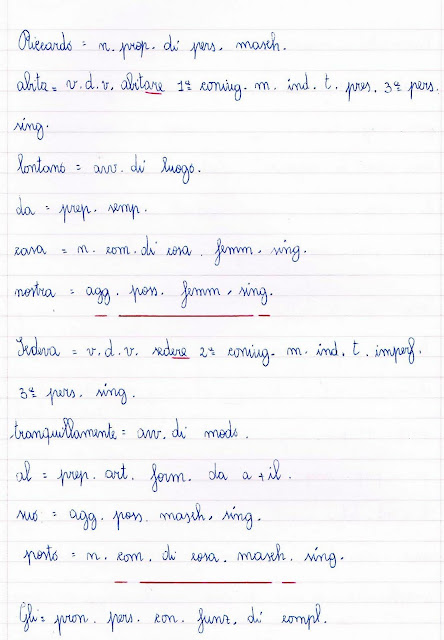 Riccardo = n. prop. di pers. masch.
abita = v. d. v. abitare 1ª coniug. m. ind. t. pres. 3ª pers.
sing.
lontano = avv. di luogo.
da = prep. semp.
casa = n. com. di cosa. femm. sing.
nostra = agg. poss. femm. sing.
Sedeva = v. d. v. sedere 2ª coniug. m. ind. t. imperf.
3ª pers. sing.
tranquillamente = avv. di modo.
al = prep. art. form. da a + il.
suo = agg. poss. masch. sing.
posto = n. com. di cosa. masch. sing.
Gli = pron. pers. con. funz. di compl.